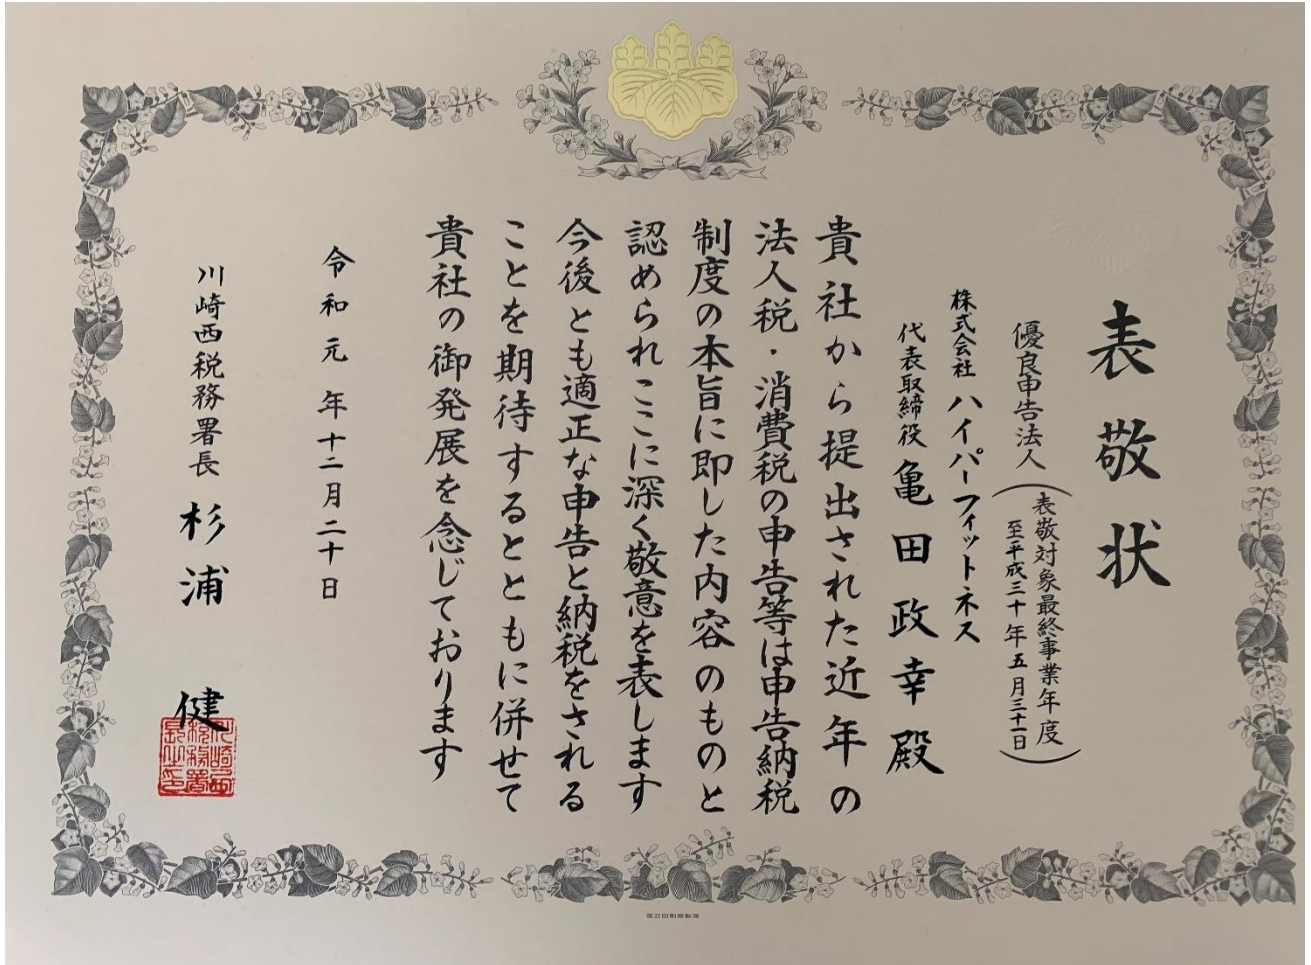 表敬状
優良申告法人
(表敬対象最終事業年度
至平成三十年五月三十一日)
株式会社 ハイパーフィットネス
代表取締役 亀田政幸殿
貴社から提出された近年の
法人税・消費税の申告等は申告納税
制度の本旨に即した内容のものと
認められここに深く敬意を表します
今後とも適正な申告と納税をされる
ことを期待するとともに併せて
貴社の御発展を念じております
令和元年十二月二十日
川崎西税務署長 杉浦 健
川崎西
税務署
長之印
国立印刷局製造